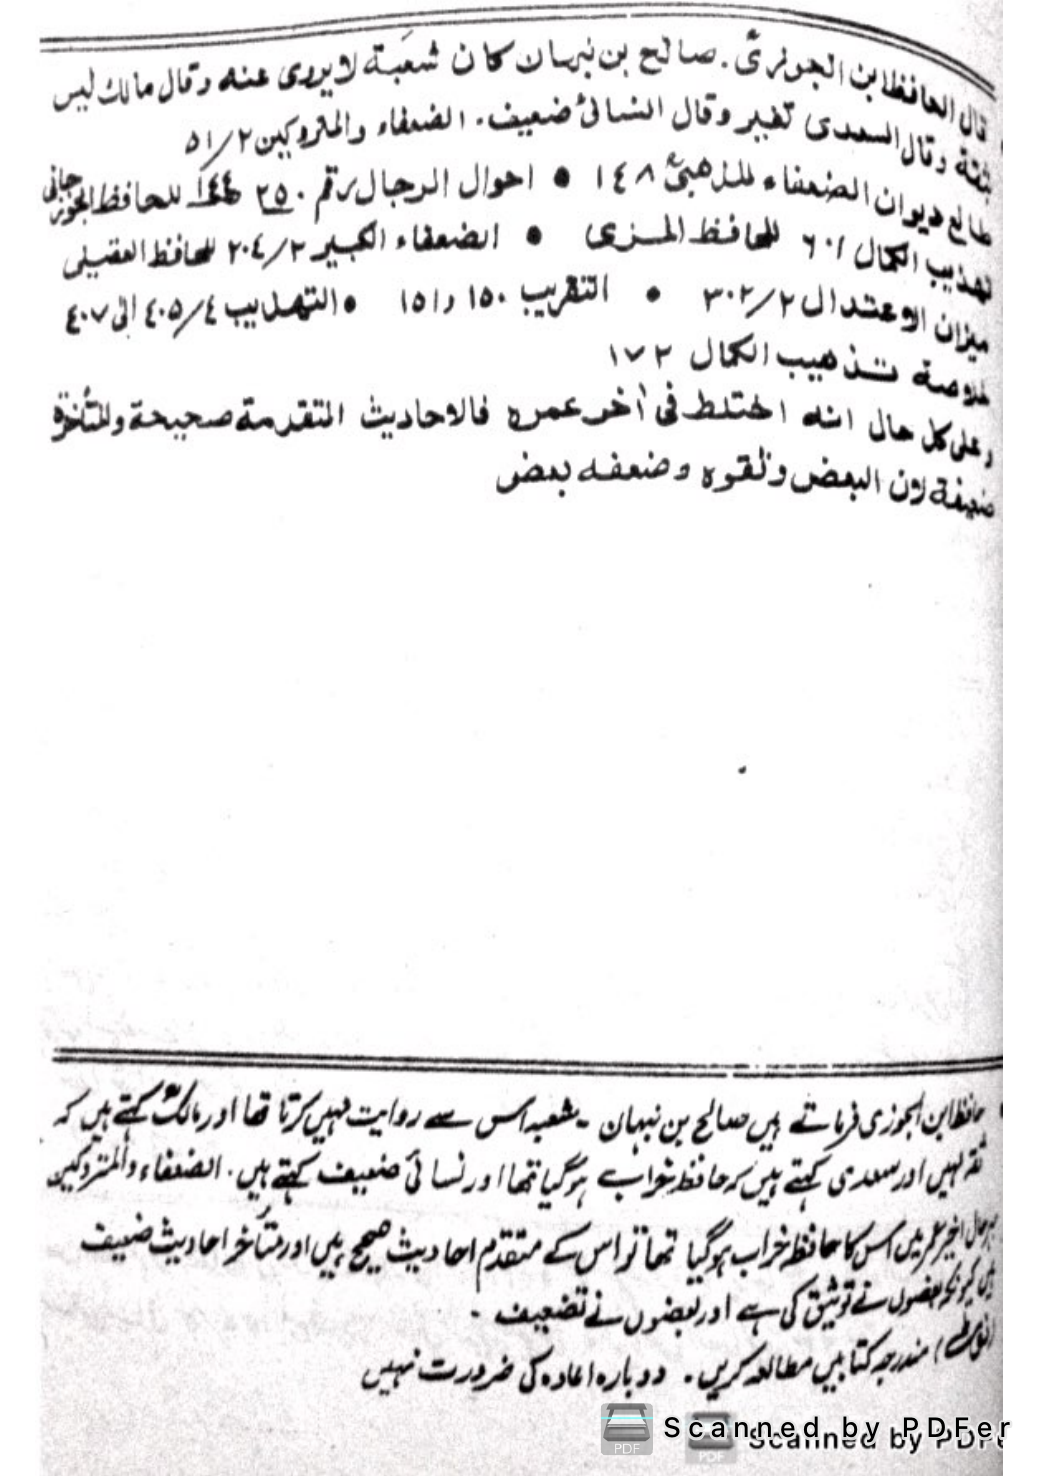 قال الحافظ ابن الجوزیؒ. صالح بن نبهان کان شعبة لا یروی عنه وقال مالك لیس
بثقة وقال السعدی تغیر وقال النسائیؒ ضعیف. الضعفاء والمتروکین ٥١/٢
طالع دیوان الضعفاء للذهبیؒ ١٤٨ • احوال الرجال رقم ٢٥٠ ١٤٤ للحافظ الجوزجانی
تهذیب الکمال ٦٠١ للحافظ المزی • الضعفاء الکبیر ٢٠٤/٢ للحافظ العقیلی
میزان الاعتدال ٣٠٢/٢ • التقریب ١٥٠ و ١٥١ • التهذیب ٤٠٥/٤ الی ٤٠٧
خلاصة تذهیب الکمال ١٧٢
وعلی کل حال انه اختلط فی اٰخر عمره فالاحادیث المتقدمة صحیحة والمتأخرة
ضعیفة لان البعض وثقوه وضعفه بعض
حافظ ابن الجوزی فرماتے ہیں صالح بن نبہان ۔ شعبہ اس سے روایت نہیں کرتا تھا اور مالکؒ کہتے ہیں کہ
ثقہ نہیں اور سعدی کہتے ہیں کہ حافظ خراب ہوگیا تھا اور نسائی ضعیف کہتے ہیں. الضعفاء والمتروکین
بہرحال اخیر عمر میں اس کا حافظہ خراب ہوگیا تھا تو اس کے متقدم احادیث صحیح ہیں اور متأخر احادیث ضعیف
ہیں کیونکہ بعضوں نے توثیق کی ہے اور بعضوں نے تضعیف ۔
(نوٹ) مندرجہ کتابیں مطالعہ کریں ۔ دوبارہ اعادہ کی ضرورت نہیں
Scanned by PDFer
Scanned by PDFe